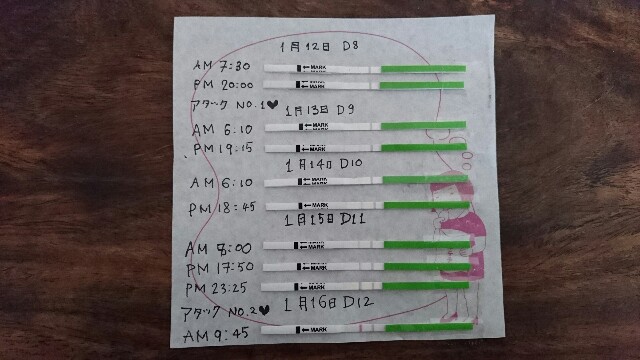 1月12日 D8
AM 7:30 ←MARK
PM 20:00 ←MARK
アタック NO.1♥
1月13日 D9
AM 6:10 ←MARK
PM 19:15 ←MARK
1月14日 D10
AM 6:10 ←MARK
PM 18:45 ←MARK
1月15日 D11
AM 8:00 ←MARK
PM 17:50 ←MARK
PM 23:25 ←MARK
アタック NO.2♥
1月16日 D12
AM 9:45 ←MARK